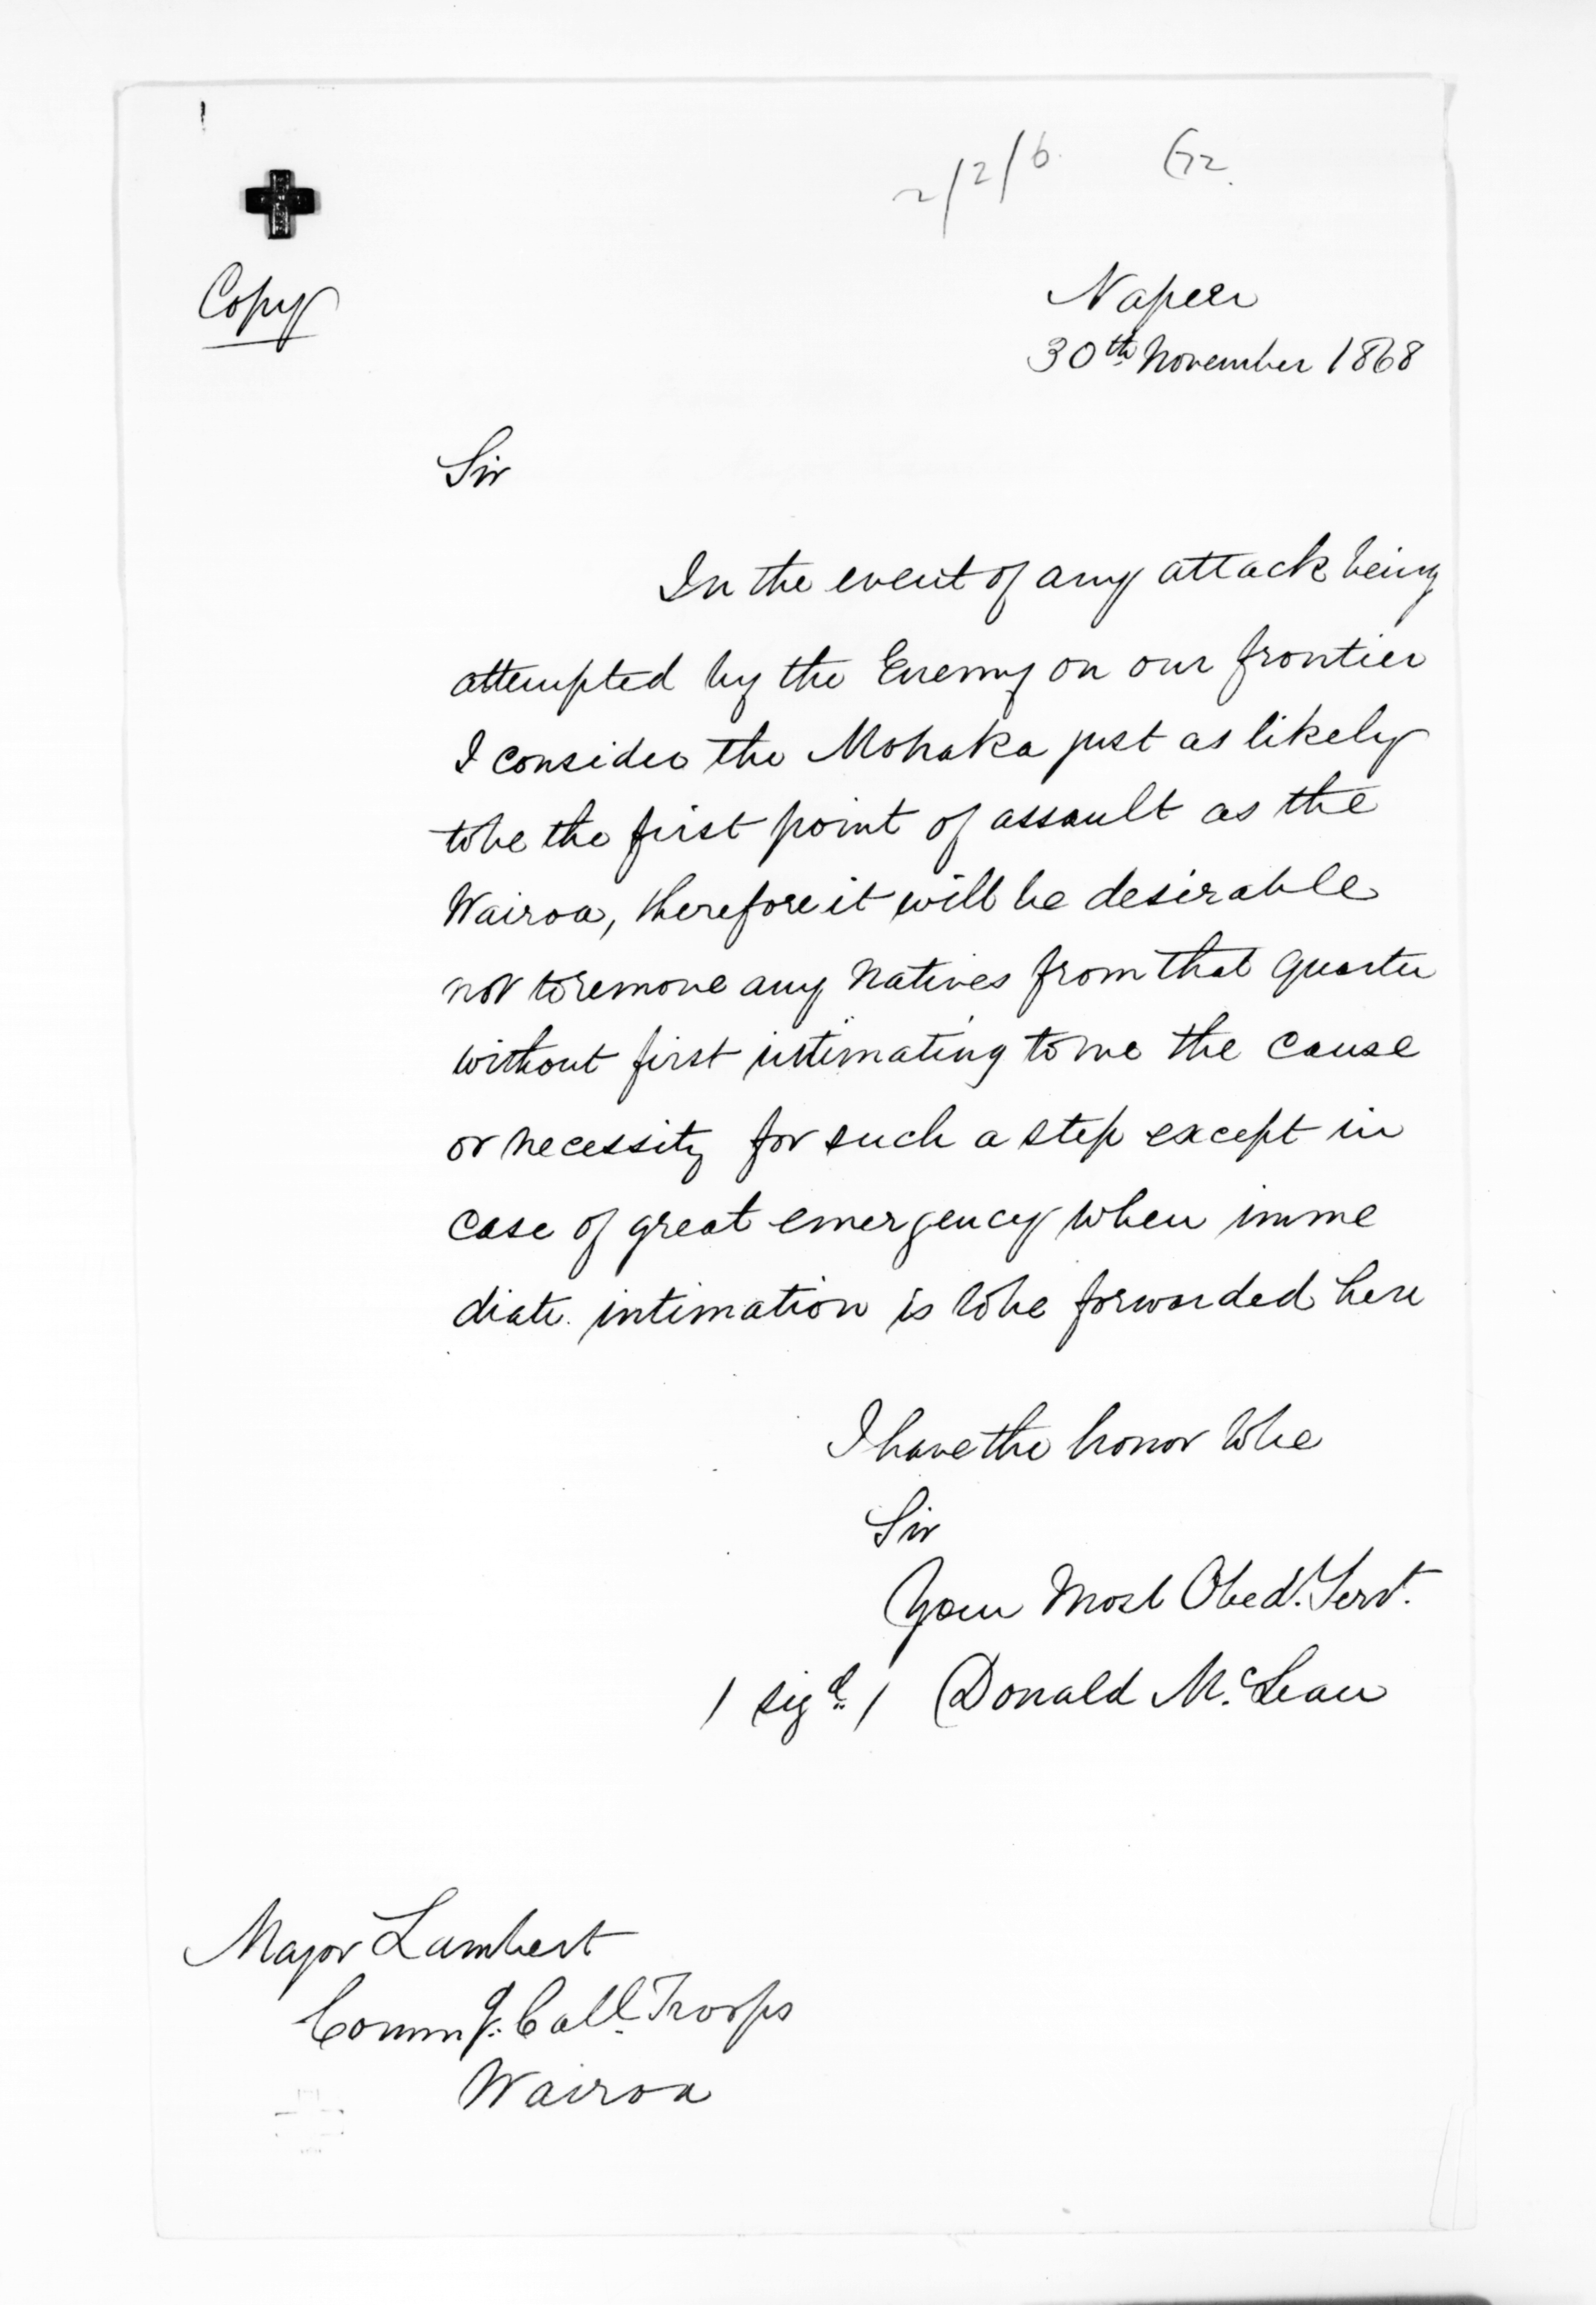 2/2/6 G2.
Copy
Napier
30th November 1868
Sir
In the event of any attack being
attempted by the Enemy on our frontier
I consider the Mohaka just as likely
to be the first point of assault as the
Wairoa, therefore it will be desirable
not to remove any Natives from that quarter
without first intimating to me the cause
or necessity for such a step except in
case of great emergency when imme
diate intimation is to be forwarded here
I have the honor to be
Sir
Your Most Obedt. Servt.
/ sigd. / Donald McLean
Major Lambert
Commg. Coll. Troops
Wairoa